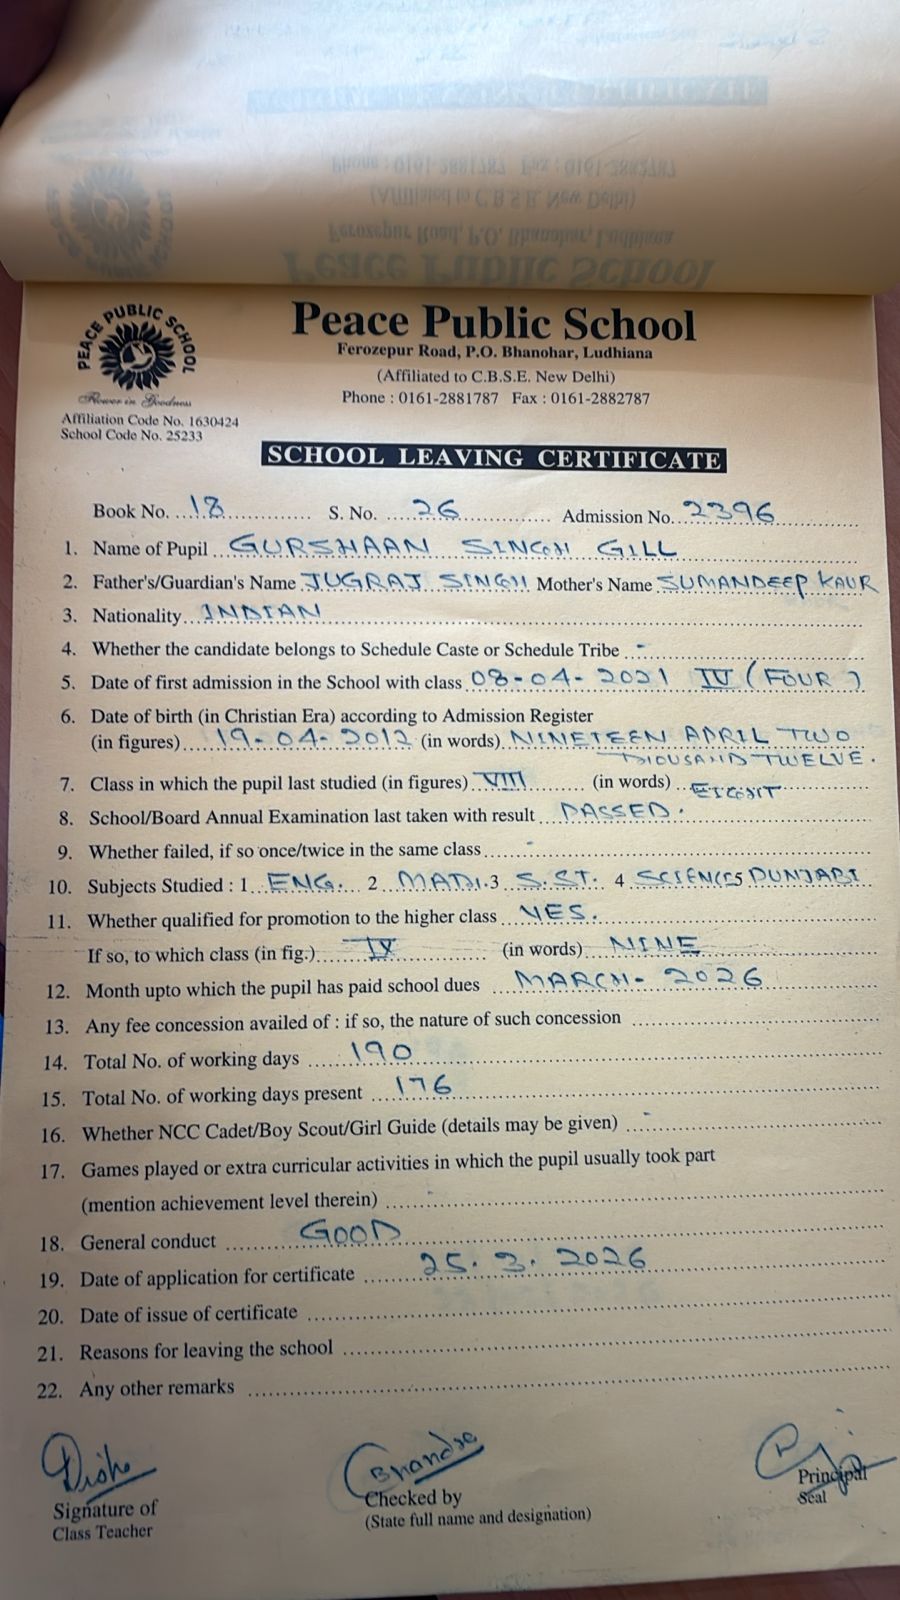 PEACE PUBLIC SCHOOL
Flower in Goodness
Affiliation Code No. 1630424
School Code No. 25233
Peace Public School
Ferozepur Road, P.O. Bhanohar, Ludhiana
(Affiliated to C.B.S.E. New Delhi)
Phone : 0161-2881787 Fax : 0161-2882787
SCHOOL LEAVING CERTIFICATE
Book No. 18 S. No. 26 Admission No. 2396
1. Name of Pupil GURSHAAN SINGH GILL
2. Father's/Guardian's Name JUGRAJ SINGH Mother's Name SUMANDEEP KAUR
3. Nationality INDIAN
4. Whether the candidate belongs to Schedule Caste or Schedule Tribe -
5. Date of first admission in the School with class 08-04-2021 IV (FOUR)
6. Date of birth (in Christian Era) according to Admission Register
(in figures) 19-04-2012 (in words) NINETEEN APRIL TWO
THOUSAND TWELVE.
7. Class in which the pupil last studied (in figures) VIII (in words) EIGHT
8. School/Board Annual Examination last taken with result PASSED.
9. Whether failed, if so once/twice in the same class -
10. Subjects Studied : 1 ENG. 2 MATH. 3 S.ST. 4 SCIENCE 5 PUNJABI
11. Whether qualified for promotion to the higher class YES.
If so, to which class (in fig.) IX (in words) NINE
12. Month upto which the pupil has paid school dues MARCH-2026
13. Any fee concession availed of : if so, the nature of such concession
14. Total No. of working days 190
15. Total No. of working days present 176
16. Whether NCC Cadet/Boy Scout/Girl Guide (details may be given) -
17. Games played or extra curricular activities in which the pupil usually took part
(mention achievement level therein) -
18. General conduct GOOD
19. Date of application for certificate 25.3.2026
20. Date of issue of certificate
21. Reasons for leaving the school
22. Any other remarks
Signature of
Class Teacher
Checked by
(State full name and designation)
Principal
Seal